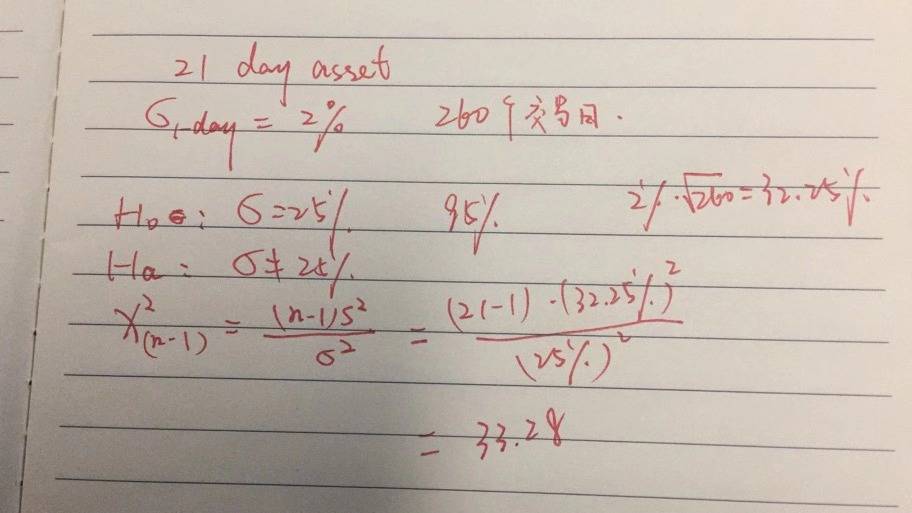 21 day asset
σ1-day = 2% 260个交易日.
2%·√260=32.25%
H0: σ=25% 95%
Ha: σ≠25%
χ²(n-1) = (n-1)s²/σ² = (21-1)·(32.25%)²/(25%)²
= 33.28